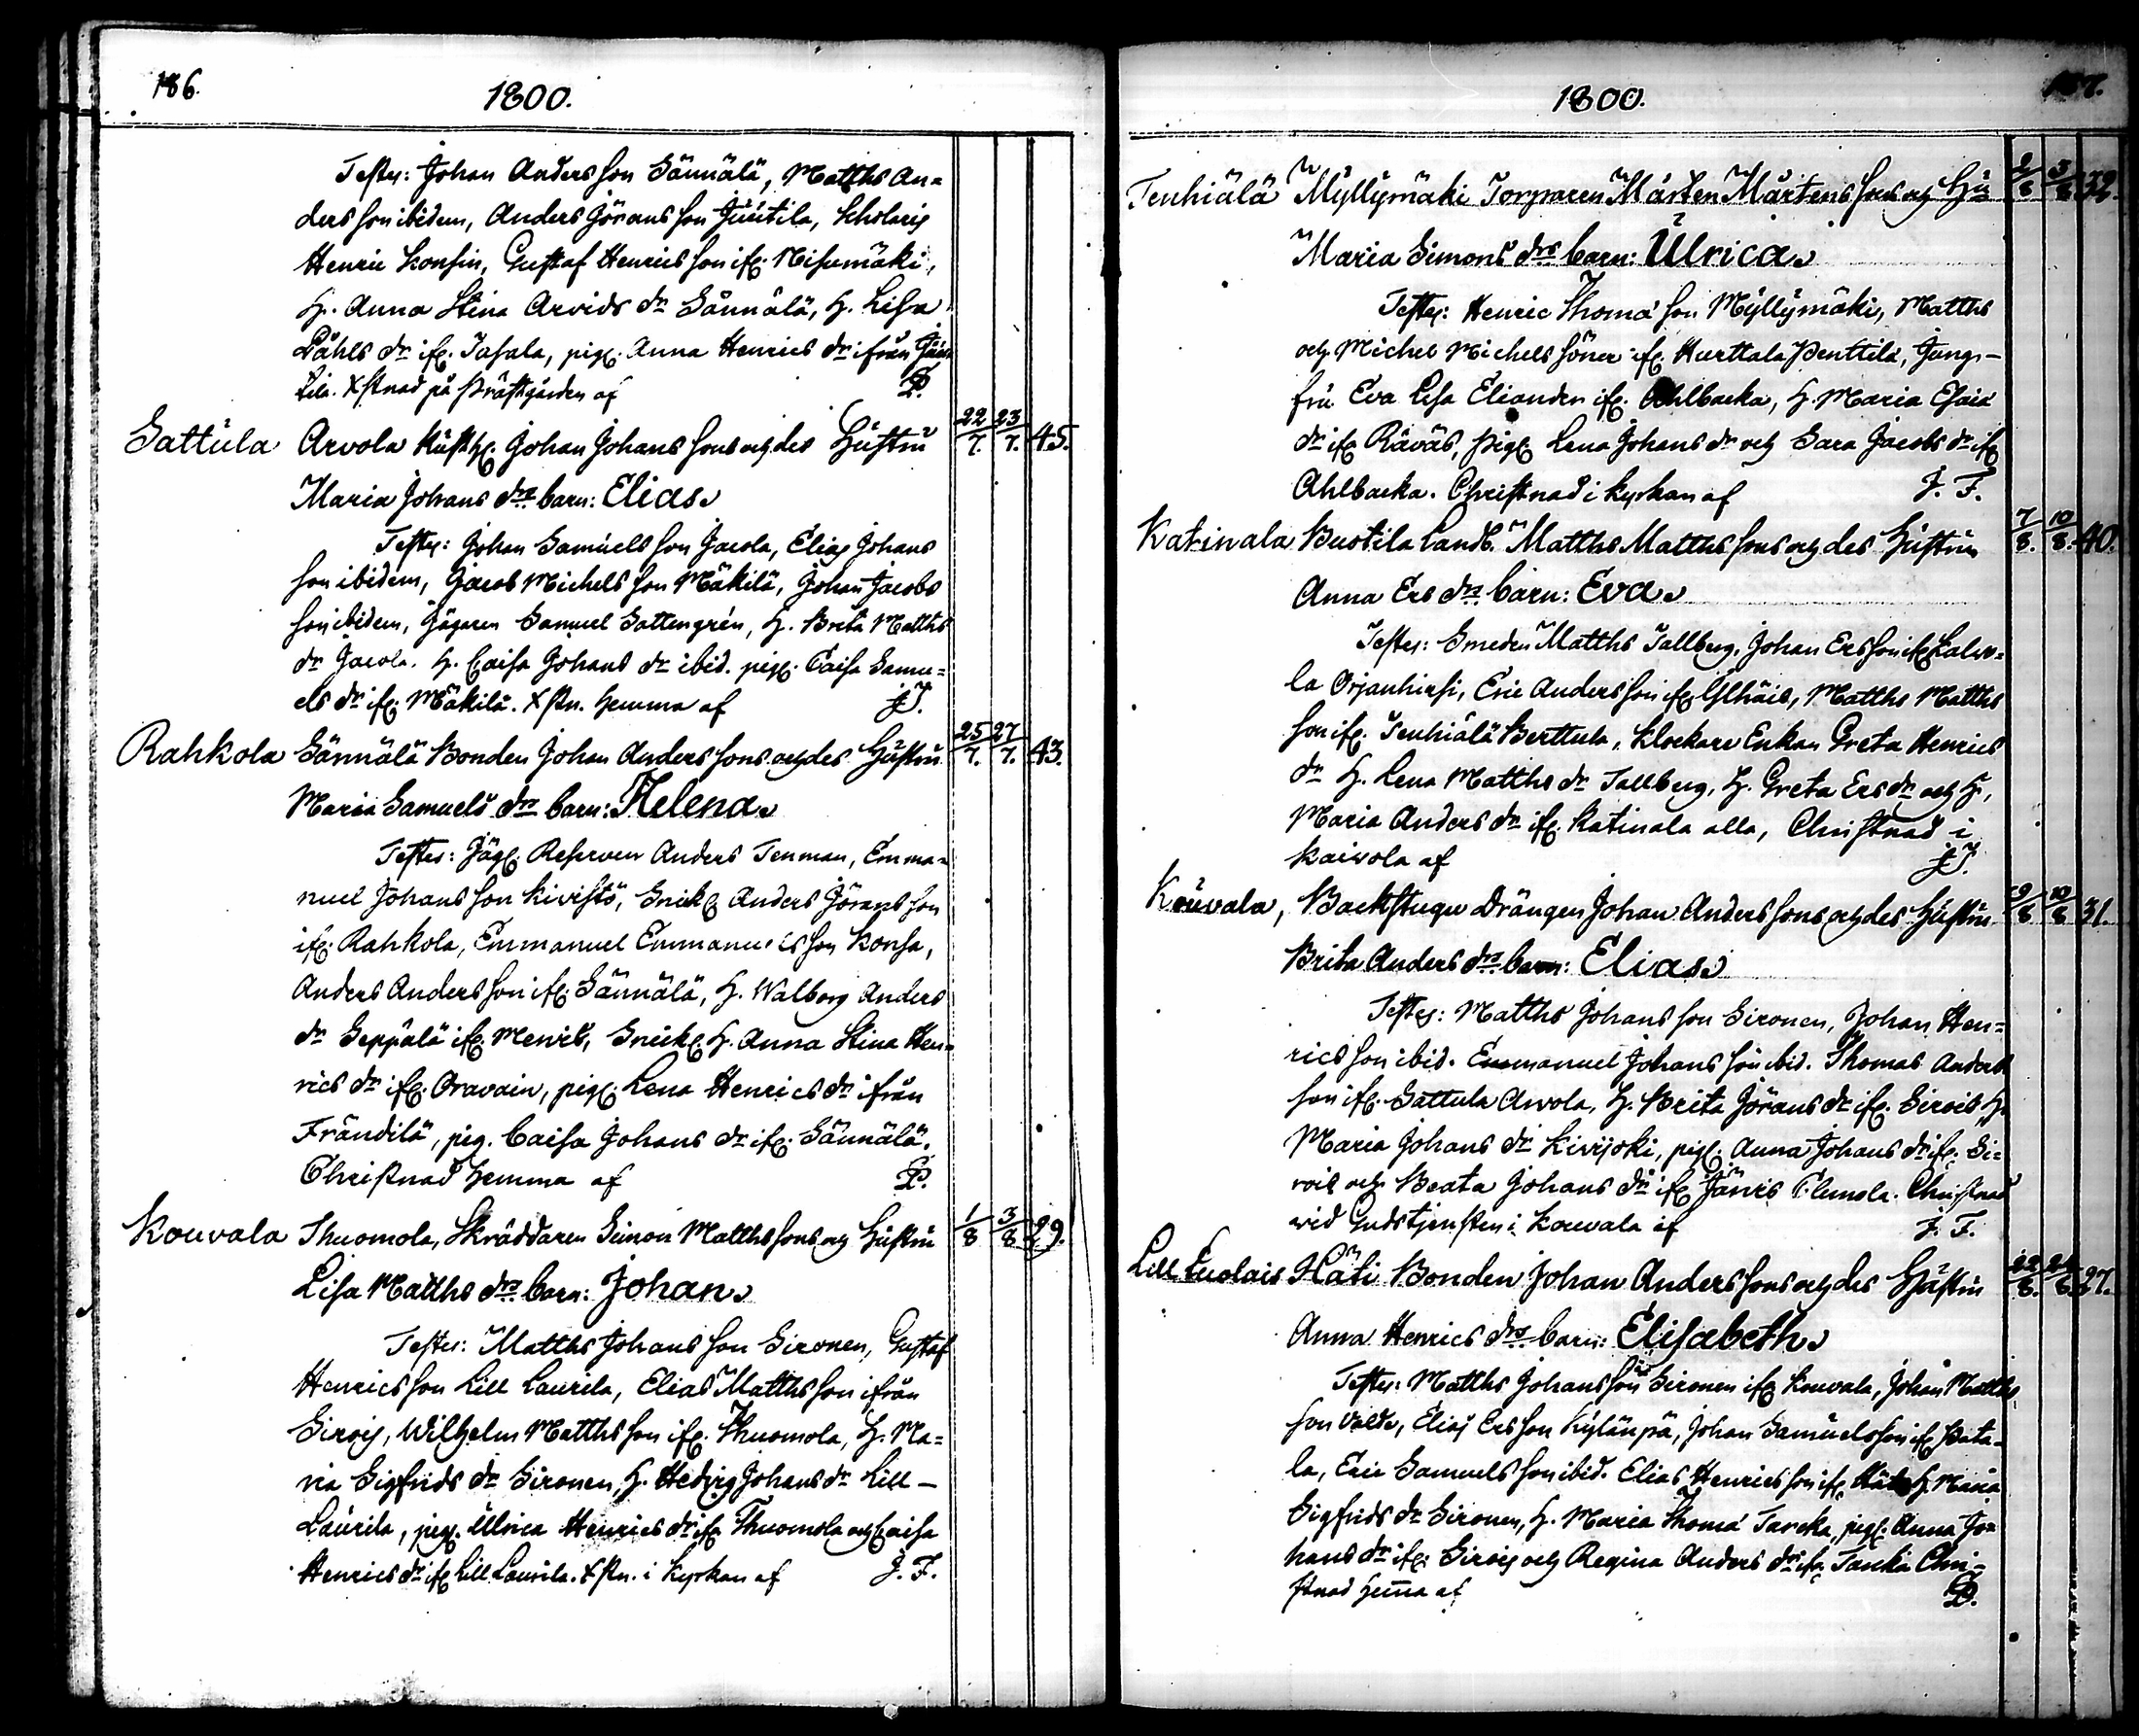 186.
1800.
Testes: Johan Andersson Sännälä, Matths An=
dersson ibidem, Anders Göransson Juutila, Scholaris
Henric Konsin, Gustaf Henricsson ifr. Nisumäki,
H. Anna Stina Arvids dr Sännälä, H. Lisa
Påhls dr ifr. Jasala, pig. Anna Henrics dr ifrån Juu
tila. Xstnad på Prästgården af P.
Sattula Arvola Johan Johanssons och des Hustru 22/7. 23/7. 45.
Maria Johans drs barn: Elias
Testes: Johan Samuelsson Jacola, Elias Johans
son ibidem, Jacob Michelsson Mäkilä, Johan Jacobs
son ibidem, Jägaren Samuel Sattengrén, H. Brita Matths
dr Jacola. H. Caisa Johans dr ibid. pig. Caisa Samu=
els dr ifr. Mäkilä. Xstn. hemma af
Rahkola Sännälä Bonden Johan Anderssons och des Hustru 25/7. 27/7. 43.
Maria Samuels drs barn: Helena
Testes: Jäg. Reserven Anders Tenman, Emma=
nuel Johansson Kivistö, Snick. Anders Göransson
ifr. Rahkola, Emmanuel Emmanuelsson Konsa,
Anders Andersson ifr. Sännälä, H. Walborg Anders
dr Seppälä ifr. Menis, Snick. H. Anna Stina Hen=
rics dr ifr. Oravain, pig. Lena Henrics dr ifrån
Frändilä, pig. Caisa Johans dr ifr. Sännälä.
Christnad hemma af P.
Kouvala Thuomola, Skräddaren Simon Matthssons och Hustru 1/8 3/8 29.
Lisa Matths drs barn: Johan
Testes: Matths Johansson Sironen, Gustaf
Henricsson Lill Laurila, Elias Matthsson ifrån
Sirois, Wilhelm Matthsson ifr. Thuomola, H. Ma=
ria Sigfrids dr Sironen, H. Hedvig Johans dr Lill-
Laurila, pig. Ulrica Henrics dr ifr. Thuomola och Caisa
Henrics dr ifr. Lill Laurila. Xstn. i Kyrkan af J. F.
187.
1800.
Tenhiälä Myllymäki Torparen Mårten Mårtens sons och Hu 2/8 3/8 32.
Maria Simons drs barn: Ulrica
Testes: Henric Thomæ son Myllymäki, Matths
och Michel Michels söner ifr. Hurttala Penttilä, Jung-
fru Eva Lisa Eliander ifr. Ahlbacka, H. Maria Esaiæ
dr ifr. Räväs, pig. Lena Johans dr och Sara Jacobs dr ifr
Ahlbacka. Christnad i kyrkan af J. F.
Katinala Landb. Matths Matthssons och des Hustru 7/8. 10/8. 40.
Anna Ers drs barn: Eva
Testes: Smeden Matths Tallberg, Johan Ersson ifr. Kalvo=
la Orjanhirsi, Eric Andersson ifr. Ylhäis, Matths Matths
son ifr. Tenhiälä Berttula, Klockare Enkan Greta Henrics
dr H. Lena Matths dr Tallberg, H. Greta Ers dr och H,
Maria Anders dr ifr. Katinala alla, Christnad i
Kaivola af
Kouvala, Backstugu Drängen Johan Anderssons och des Hustru 9/8 10/8 31.
Brita Anders drs barn: Elias
Testes: Matths Johansson Sironen, Johan Hen=
ricsson ibid. Emmanuel Johansson ibid. Thomas Anders
son ifr. Sattula Arvola, H. Brita Jörans dr ifr. Sirois H.
Maria Johans dr Kivijoki, pig. Anna Johans dr ifr. Si=
rois och Beata Johans dr ifr. Järvis Clemola. Christnad
wid Gudstjensten i Kouvala af J. F.
Lill Luolais Häti Bonden Johan Anderssons och des Hustru 22/8. 24/8. 27.
Anna Henrics drs barn: Elisabeth
Testes: Matths Johansson Sironen ifr. Kouvala, Johan Matths
son Elias Ersson Kylänpä, Johan Samuelsson ifr. Pata-
la, Eric Samuelsson ibid. Elias Henricsson ifr. H. Maria
Sigfrids dr Sironen, H. Maria Thomæ pig. Anna Jo=
hans dr ifr. Sirois och Regina Anders dr ifr. Chri-
stnad hema af P.